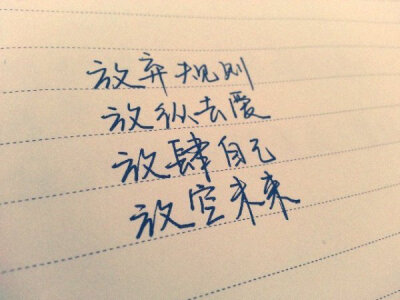 放弃规则
放纵去爱
放肆自己
放空未来